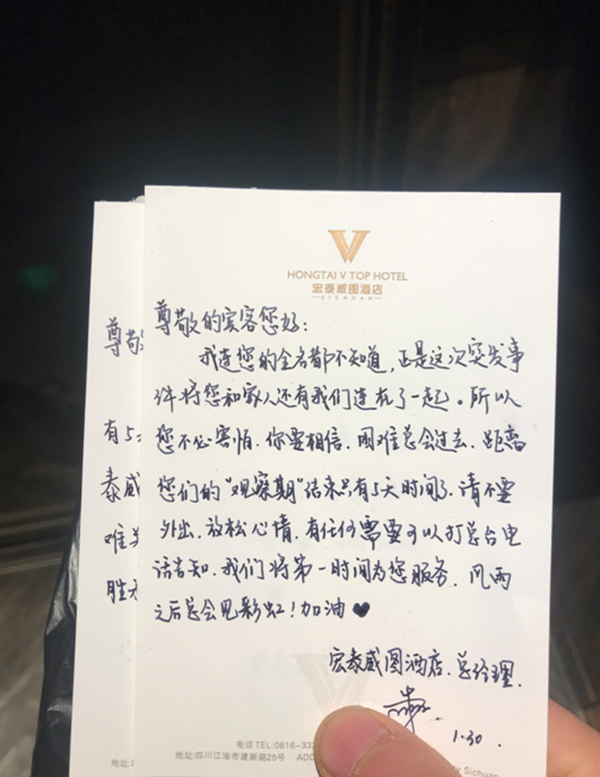 V
HONGTAI V TOP HOTEL
宏泰威图酒店
SICHUAN
尊敬的宾客您好:
我连您的全名都不知道,正是这次突发事
件将您和家人还有我们连在了一起。所以
您不必害怕.你要相信.困难总会过去.距离
您们的“观察期”结束只有5天时间了.请不要
外出.放松心情.有任何需要可以打总台电
话告知.我们将第一时间为您服务.风雨
之后总会见彩虹!加油♥
宏泰威图酒店.总经理.
1.30.
电话TEL:0816-332
地址:四川江油市建新路25号 ADD
Sichuan
尊敬
有5
泰威
难
胜
地址: